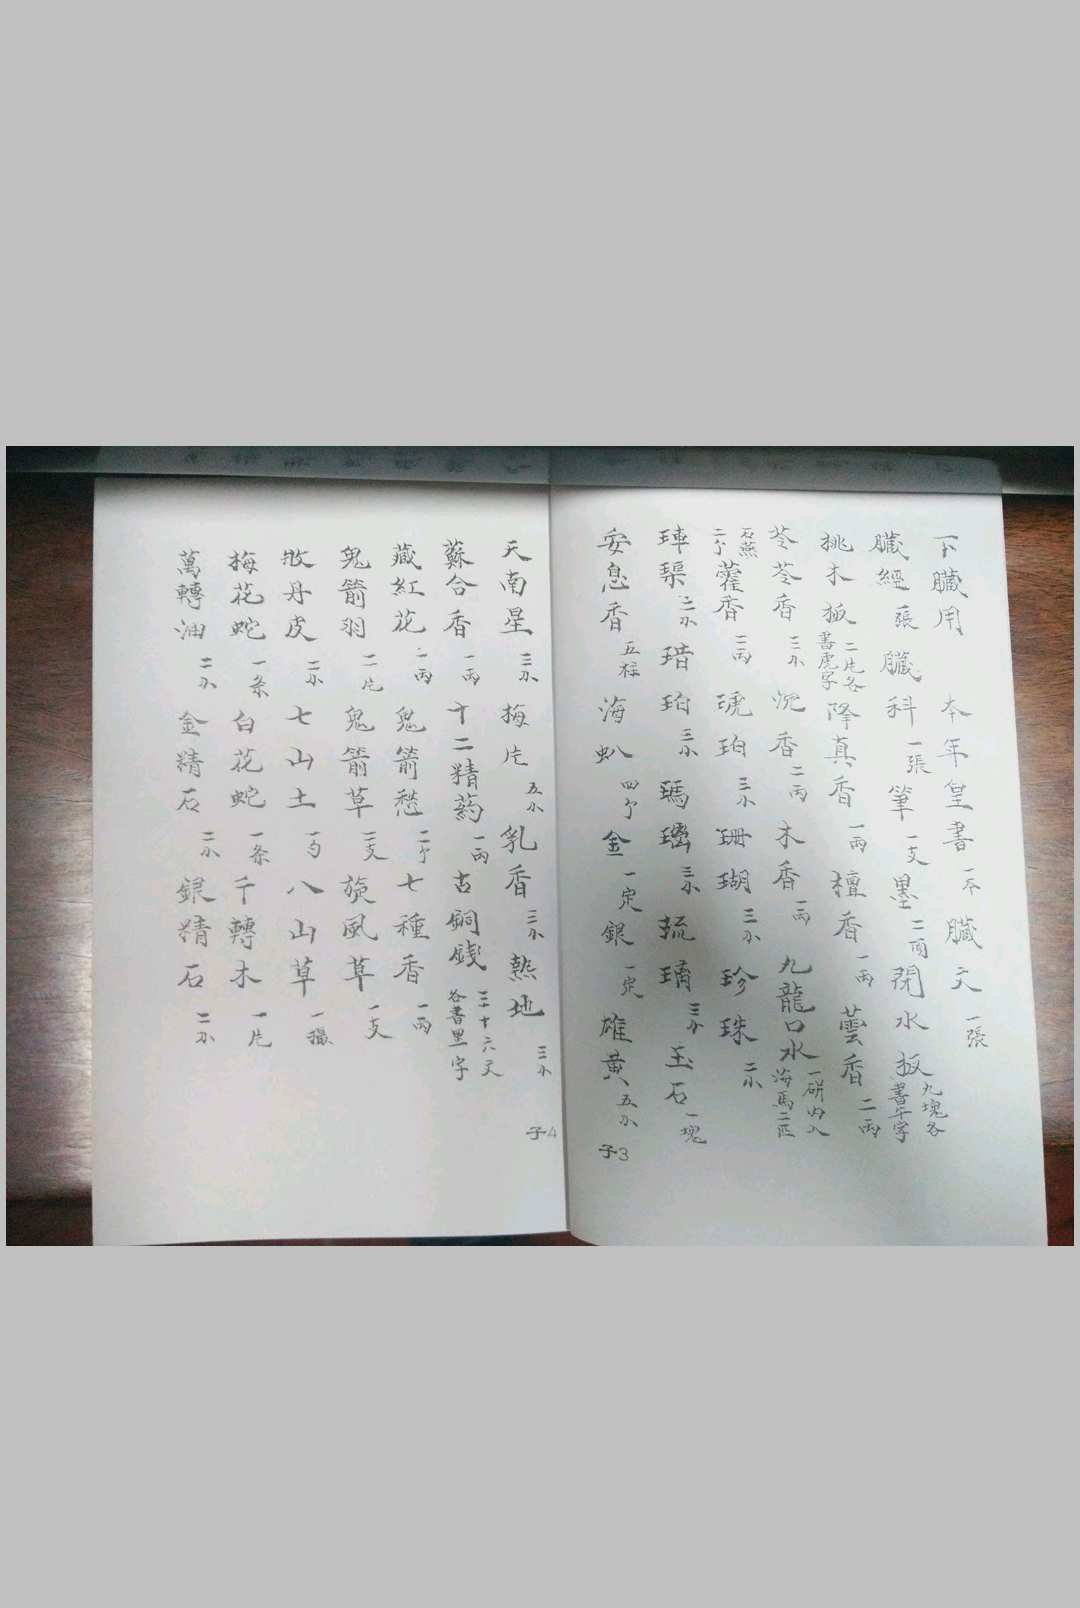 下臟用　本年皇書一本　臟文一張
臟經張　臟科一張　筆一支　墨二両　閉水板九塊各書午字
挑木板二片各書虎字　降真香一両　檀香一両　蕓香二両
苓苓香三分　沉香二両　木香一両　九龍口水一硑内入海馬二匹
石燕二个　藿香二両　琥珀三分　珊瑚三分　珍珠二分
璖三分　珀三分　瑪璃三分　琉璃三分　玉石一塊
安息香五柱　海叭四个　金一定　銀一定　雄黄五分
子3
天南星三分　梅片五分　乳香三分　熟地三分
蘇合香一両　十二精葯一両　古銅錢三十六文各書里字
藏紅花一両　鬼箭愁二个　七種香一両
鬼箭羽二片　鬼箭草一支　旋風草一支
丹皮二分　七山土一勺　八山草一撮
梅花蛇一条　白花蛇一条　千轉木一片
萬轉油二分　金精石二分　銀精石二分
子4